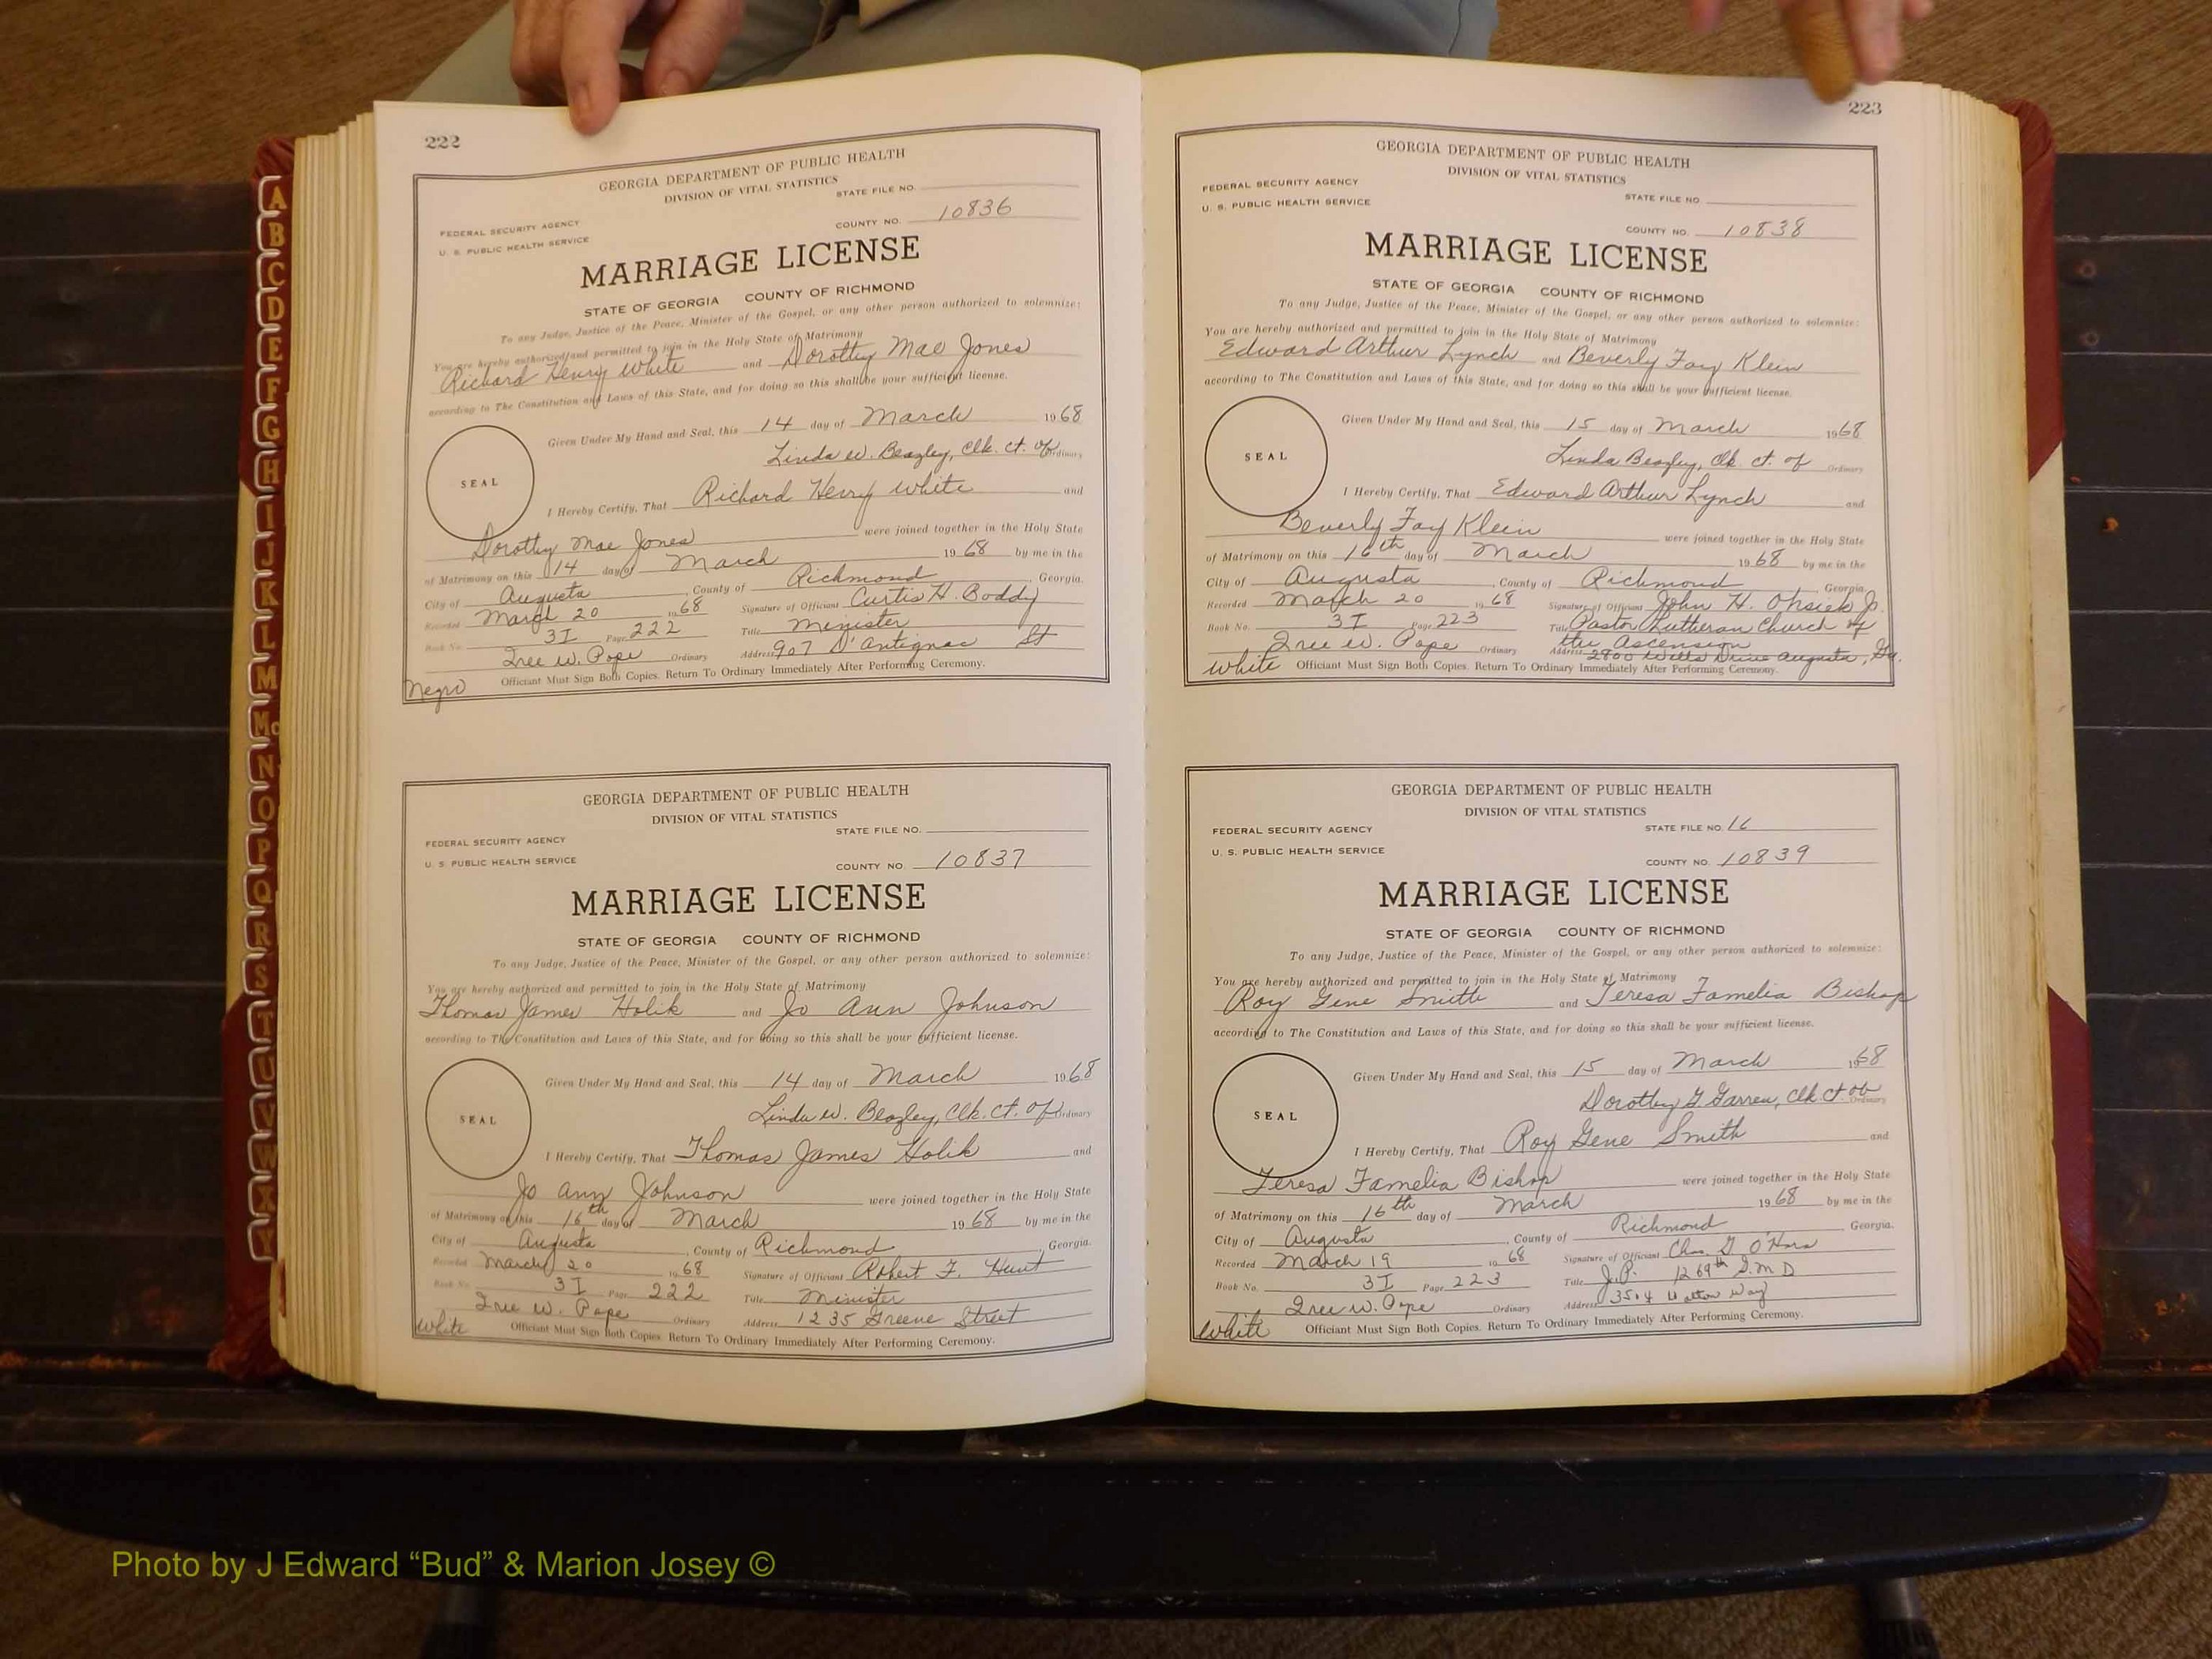 222
GEORGIA DEPARTMENT OF PUBLIC HEALTH
DIVISION OF VITAL STATISTICS
STATE FILE NO.
FEDERAL SECURITY AGENCY
U. S. PUBLIC HEALTH SERVICE
COUNTY NO. 10836
MARRIAGE LICENSE
STATE OF GEORGIA COUNTY OF RICHMOND
To any Judge, Justice of the Peace, Minister of the Gospel, or any other person authorized to solemnize:
You are hereby authorized and permitted to join in the Holy State of Matrimony
Richard Henry White and Dorothy Mae Jones
according to The Constitution and Laws of this State, and for doing so this shall be your sufficient license.
Given Under My Hand and Seal, this 14 day of March 1968
Linda W. Beazley, Clk. Ct. of Ordinary
SEAL
I Hereby Certify, That Richard Henry White and
Dorothy Mae Jones were joined together in the Holy State
of Matrimony on this 14 day of March 1968 by me in the
City of Augusta, County of Richmond, Georgia.
Recorded March 20 1968 Signature of Officiant Curtis H. Boddy
Book No. 3I Page 222 Title Minister
Iree W. Pope Ordinary Address 907 D'Antignac St
Negro Officiant Must Sign Both Copies. Return To Ordinary Immediately After Performing Ceremony.
GEORGIA DEPARTMENT OF PUBLIC HEALTH
DIVISION OF VITAL STATISTICS
STATE FILE NO.
FEDERAL SECURITY AGENCY
U. S. PUBLIC HEALTH SERVICE
COUNTY NO. 10837
MARRIAGE LICENSE
STATE OF GEORGIA COUNTY OF RICHMOND
To any Judge, Justice of the Peace, Minister of the Gospel, or any other person authorized to solemnize:
You are hereby authorized and permitted to join in the Holy State of Matrimony
Thomas James Holik and Jo Ann Johnson
according to The Constitution and Laws of this State, and for doing so this shall be your sufficient license.
Given Under My Hand and Seal, this 14 day of March 1968
Linda W. Beazley, Clk. Ct. of Ordinary
SEAL
I Hereby Certify, That Thomas James Holik and
Jo Ann Johnson were joined together in the Holy State
of Matrimony on this 16th day of March 1968 by me in the
City of Augusta, County of Richmond, Georgia.
Recorded March 20 1968 Signature of Officiant Robert F. Hunt
Book No. 3I Page 222 Title Minister
Iree W. Pope Ordinary Address 1235 Greene Street
White Officiant Must Sign Both Copies. Return To Ordinary Immediately After Performing Ceremony.
223
GEORGIA DEPARTMENT OF PUBLIC HEALTH
DIVISION OF VITAL STATISTICS
FEDERAL SECURITY AGENCY
STATE FILE NO.
U. S. PUBLIC HEALTH SERVICE
COUNTY NO. 10838
MARRIAGE LICENSE
STATE OF GEORGIA COUNTY OF RICHMOND
To any Judge, Justice of the Peace, Minister of the Gospel, or any other person authorized to solemnize:
You are hereby authorized and permitted to join in the Holy State of Matrimony
Edward Arthur Lynch and Beverly Fay Klein
according to The Constitution and Laws of this State, and for doing so this shall be your sufficient license.
Given Under My Hand and Seal, this 15 day of March 1968
Linda Beazley, Clk. Ct. of Ordinary
SEAL
I Hereby Certify, That Edward Arthur Lynch and
Beverly Fay Klein were joined together in the Holy State
of Matrimony on this 16th day of March 1968 by me in the
City of Augusta, County of Richmond, Georgia.
Recorded March 20 1968 Signature of Officiant John H. Jr.
Book No. 3I Page 223 Title Pastor Lutheran Church of
Iree W. Pope Ordinary the Ascension
Address 2800 Wills Drive Augusta, Ga.
White Officiant Must Sign Both Copies. Return To Ordinary Immediately After Performing Ceremony.
GEORGIA DEPARTMENT OF PUBLIC HEALTH
DIVISION OF VITAL STATISTICS
FEDERAL SECURITY AGENCY
STATE FILE NO. 16
U. S. PUBLIC HEALTH SERVICE
COUNTY NO. 10839
MARRIAGE LICENSE
STATE OF GEORGIA COUNTY OF RICHMOND
To any Judge, Justice of the Peace, Minister of the Gospel, or any other person authorized to solemnize:
You are hereby authorized and permitted to join in the Holy State of Matrimony
Roy Gene Smith and Teresa Famelia Bishop
according to The Constitution and Laws of this State, and for doing so this shall be your sufficient license.
Given Under My Hand and Seal, this 15 day of March 1968
Dorothy G. Garren, Clk. Ct. of Ordinary
SEAL
I Hereby Certify, That Roy Gene Smith and
Teresa Famelia Bishop were joined together in the Holy State
of Matrimony on this 16th day of March 1968 by me in the
City of Augusta, County of Richmond, Georgia.
Recorded March 19 1968 Signature of Officiant Chas. G. O'Hara
Book No. 3I Page 223 Title J.P. 1269th G.M.D
Iree W. Pope Ordinary Address 3504 Walton Way
White Officiant Must Sign Both Copies. Return To Ordinary Immediately After Performing Ceremony.
A
B
C
D
E
F
G
H
I
J
K
L
M
Mc
N
O
P
Q
R
S
T
U
V
W
X
Y
Photo by J Edward “Bud” & Marion Josey ©